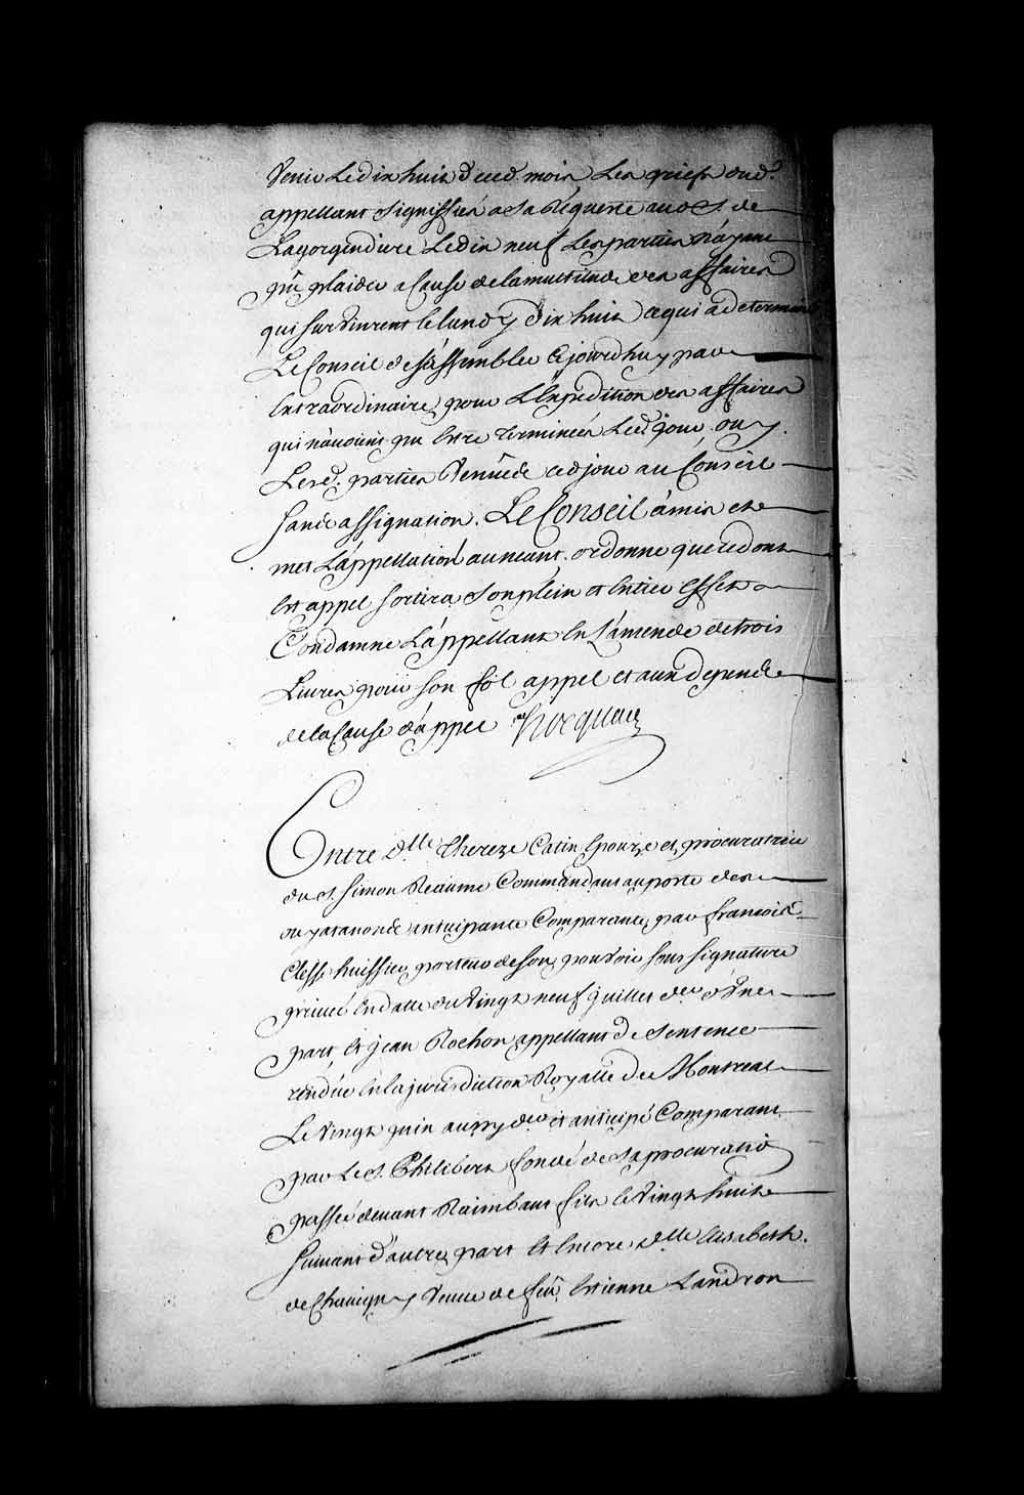 Venir Le dix huit de ced. mois Les griefs dud.
appellant signiffiés a sa Requeste aud S. de
Lagorgendiere Le dix neuf Les parties n'ayant
pû plaider a Cause de la multitude des affaires
qui survinrent le lundy dix huit ce qui a determiné
Le Conseil de s'assembler Cejourdhuy par
Extraordinaire pour L'Expedition des affaires
qui n'avoient pu Estre terminées Led. jour. ouy
Lesd. parties Venües ced jour au Conseil
sans assignation. Le Conseil a mis et
met L'appellation au neant. ordonne que ce dont
Est appel sortira son plein et Entier Effet
Condamne L'appellant En L'amende de trois
Livres pour son fol appel et aux depends
de la Cause d'appel Hocquart
Entre dlle. Thereze Catin Epouze et procuratrice
du S. Simon Reaume Commandant au poste des
ouyatanons anticipante Comparante par françois
Clesse huissier porteur de son pouvoir sous signature
privée En datte du Vingt neuf juillet der. d'Une
part Et jean Rochon appellant de sentence
rendüe En la jurisdiction Royalle de Montreal
Le Vingt juin aussy der et anticipé Comparant
par Le S. Philibert fondé de sa procuration
passée devant Raimbaut fils le Vingt huit
suivant d'autre part Et Encore dlle Elisabeth
de Chavigny Veuve de feû Estienne Landron